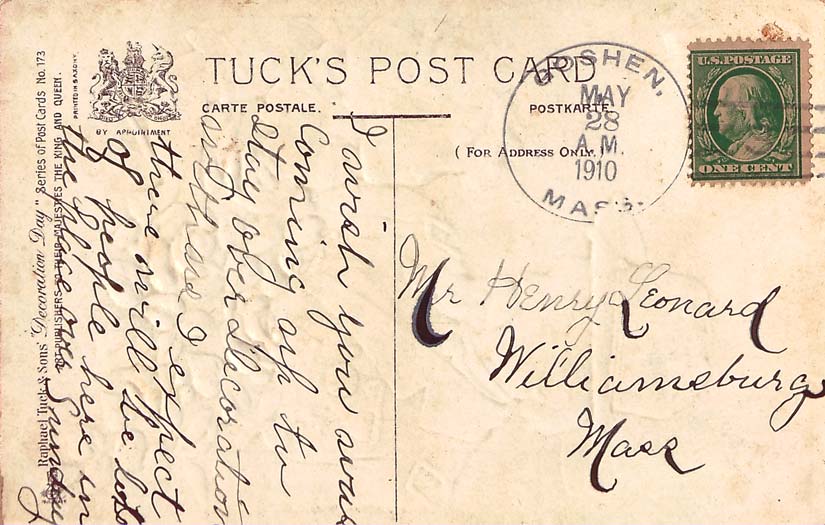 TUCK'S POST CARD
CARTE POSTALE.
POSTKARTE.
(FOR ADDRESS ONLY.)
BY APPOINTMENT
PRINTED IN SAXONY.
Raphael Tuck & Sons' "Decoration Day" Series of Post Cards No. 173
PUBLISHERS TO THEIR MAJESTIES THE KING AND QUEEN.
GOSHEN,
MAY
28
A.M.
1910
MASS.
U.S. POSTAGE
ONE CENT
I wish you was
coming up to
stay over Decoration
and there I expect
there will be lots
of people here in
the place over Sunday
Mr Henry Leonard
Williamsburg
Mass